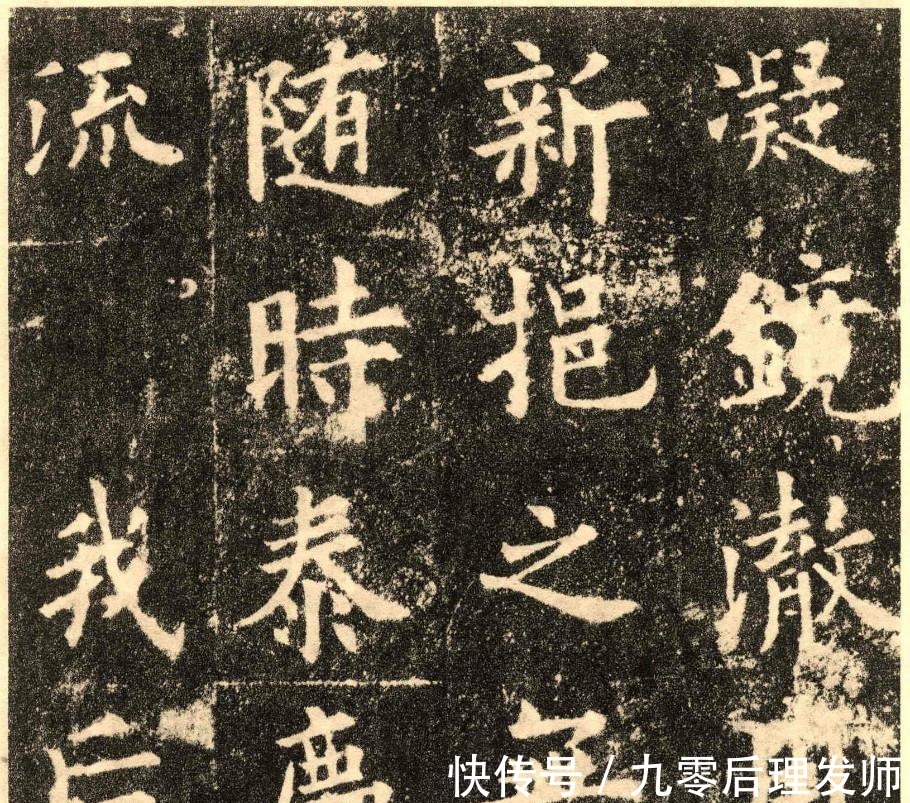 凝鏡澈
新挹之
随時泰
流我
快传号 / 九零后理发师